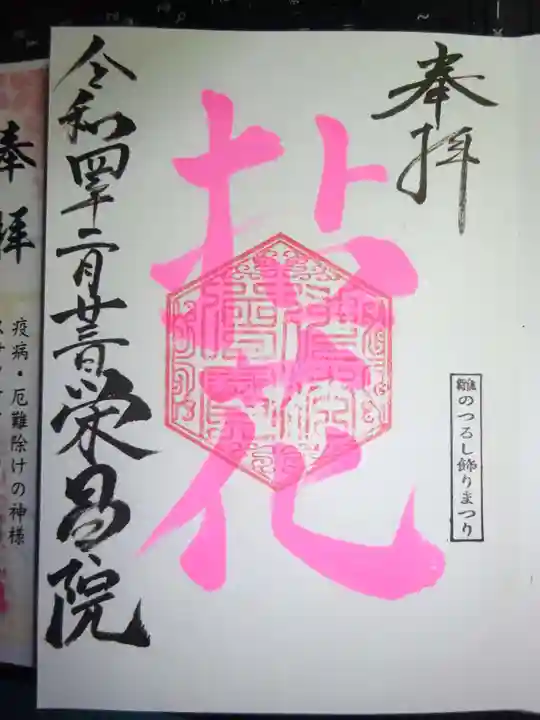 奉拝
雛のつるし飾りまつり
拈花
令和四年二月廿三日 栄昌院
奉拝
疫病・厄難除けの神様
スサノオ